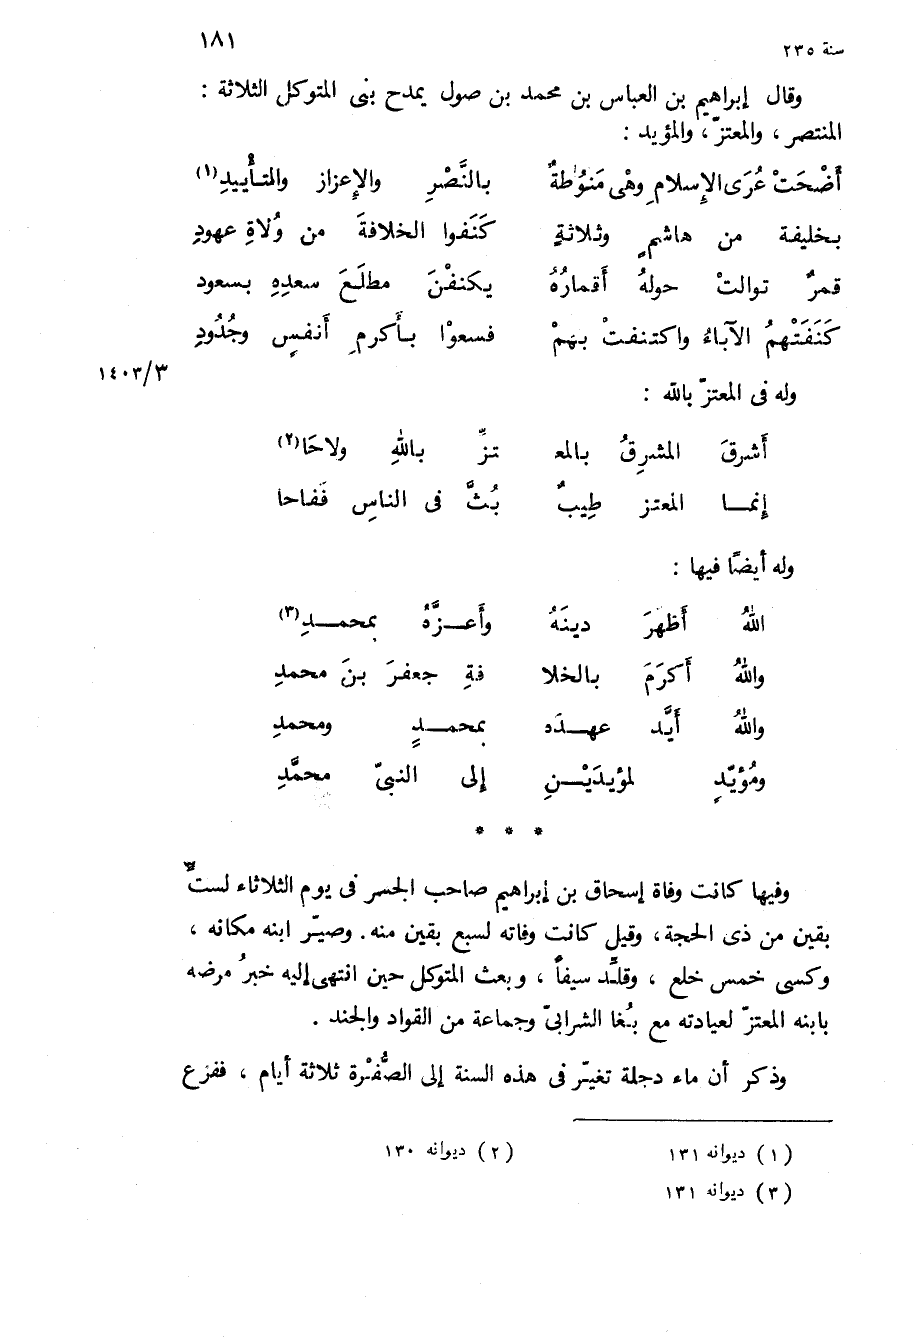 سنة ٢٣٥ ١٨١
وقال إبراهيم بن العباس بن محمد بن صول يمدح بنى المتوكل الثلاثة :
المنتصر ، والمعتزّ ، والمؤيد :
أَضْحَتْ عُرَى الإسلامِ وهْى مَنوُطةٌ بالنَّصْرِ والإعزاز والتأْييدِ(١)
بخليفة من هاشمٍ وثلاثةٍ كَنَفوا الخلافةَ من وُلاةِ عهودِ
قمرٌ توالتْ حولهُ أقمارُهُ يكنفْنَ مطلَعَ سعدِهِ بسعود
كَنَفَتْهمُ الآباءُ واكتنفتْ بهمْ فسعوْا بأَكرمِ أَنفسٍ وجُدُودِ
وله فى المعتزّ بالله :
١٤٠٣/٣
أَشرقَ المشرِقُ بالمعـ ـتزِّ باللهِ ولاحَا(٢)
إنمـا المعتز طِيبٌ بُثَّ فى الناسِ فَفاحا
وله أيضًا فيها :
اللهُ أظهرَ دينَهُ وأَعـزَّهُ بمحمـدِ(٣)
واللهُ أَكرَمَ بالخلا فةِ جعفرَ بنَ محمدِ
واللهُ أَيَّد عهـدَه بمحمـدٍ ومحمدِ
ومُؤيّدٍ لمؤيدَيْـنِ إلى النبىّ محمَّدِ
* * *
وفيها كانت وفاة إسحاق بن إبراهيم صاحب الجسر فى يوم الثلاثاء لستّ
بقين من ذى الحجة ، وقيل كانت وفاته لسبع بقين منه. وصيّر ابنه مكانه ،
وكسى خمس خلع ، وقلِّد سيفاً ، وبعث المتوكل حين انتهى إليه خبرُ مرضه
بابنه المعتزّ لعيادته مع بُغا الشرابىّ وجماعة من القواد والجند .
وذكر أن ماء دجلة تغيّر فى هذه السنة إلى الصُّفْرة ثلاثة أيام ، ففزع
(١) ديوانه ١٣١ (٢) ديوانه ١٣٠
(٣) ديوانه ١٣١